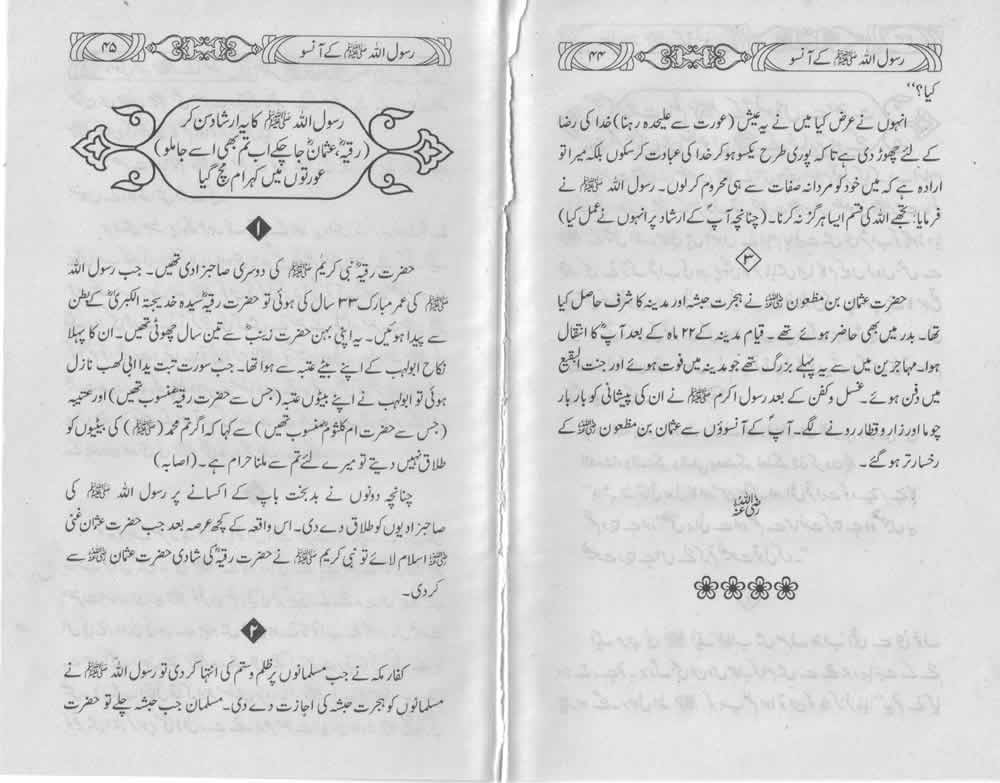 رسول اللہ ﷺ کے آنسو
۴۴
کیا؟‘‘
انہوں نے عرض کیا میں نے یہ عیش (عورت سے علیحدہ رہنا) خدا کی رضا
کے لئے چھوڑ دی ہے تاکہ پوری طرح یکسو ہو کر خدا کی عبادت کر سکوں بلکہ میرا تو
ارادہ ہے کہ میں خود کو مردانہ صفات سے ہی محروم کر لوں۔ رسول اللہ ﷺ نے
فرمایا: تجھے اللہ کی قسم ایسا ہرگز نہ کرنا۔ (چنانچہ آپؐ کے ارشاد پر انہوں نے عمل کیا)
۳
حضرت عثمان بن مظعون ؓ نے ہجرت حبشہ اور مدینہ کا شرف حاصل کیا
تھا۔ بدر میں بھی حاضر ہوئے تھے۔ قیام مدینہ کے ۲۲ ماہ کے بعد آپؓ کا انتقال
ہوا۔ مہاجرین میں سے یہ پہلے بزرگ تھے جو مدینہ میں فوت ہوئے اور جنت البقیع
میں دفن ہوئے۔ غسل و کفن کے بعد رسول اکرم ﷺ نے ان کی پیشانی کو بار بار
چوما اور زار و قطار رونے لگے۔ آپؐ کے آنسوؤں سے عثمان بن مظعون ؓ کے
رخسار تر ہو گئے۔
رضی اللہ عنہ
رسول اللہ ﷺ کے آنسو
۴۵
رسول اللہ ﷺ کا یہ ارشاد سن کر
(رقیہؓ، عثمانؓ جا چکے اب تم بھی اسے جا ملو)
عورتوں میں کہرام مچ گیا
۱
حضرت رقیہؓ نبی کریم ﷺ کی دوسری صاحبزادی تھیں۔ جب رسول اللہ
ﷺ کی عمر مبارک ۳۳ سال کی ہوئی تو حضرت رقیہؓ سیدہ خدیجۃ الکبریٰؓ کے بطن
سے پیدا ہوئیں۔ یہ اپنی بہن حضرت زینبؓ سے تین سال چھوٹی تھیں۔ ان کا پہلا
نکاح ابولہب کے اپنے بیٹے عتبہ سے ہوا تھا۔ جب سورت تبت یدا ابی لھب نازل
ہوئی تو ابولہب نے اپنے بیٹوں عتبہ (جس سے حضرت رقیہؓ منسوب تھیں) اور عتیبہ
(جس سے حضرت ام کلثومؓ منسوب تھیں) سے کہا کہ اگر تم محمد (ﷺ) کی بیٹیوں کو
طلاق نہیں دیتے تو میرے لئے تم سے ملنا حرام ہے۔ (اصابہ)
چنانچہ دونوں نے بدبخت باپ کے اکسانے پر رسول اللہ ﷺ کی
صاحبزادیوں کو طلاق دے دی۔ اس واقعہ کے کچھ عرصہ بعد جب حضرت عثمان غنی
ؓ اسلام لائے تو نبی کریم ﷺ نے حضرت رقیہؓ کی شادی حضرت عثمان ؓ سے
کر دی۔
۲
کفار مکہ نے جب مسلمانوں پر ظلم و ستم کی انتہا کر دی تو رسول اللہ ﷺ نے
مسلمانوں کو ہجرت حبشہ کی اجازت دے دی۔ مسلمان جب حبشہ چلے تو حضرت